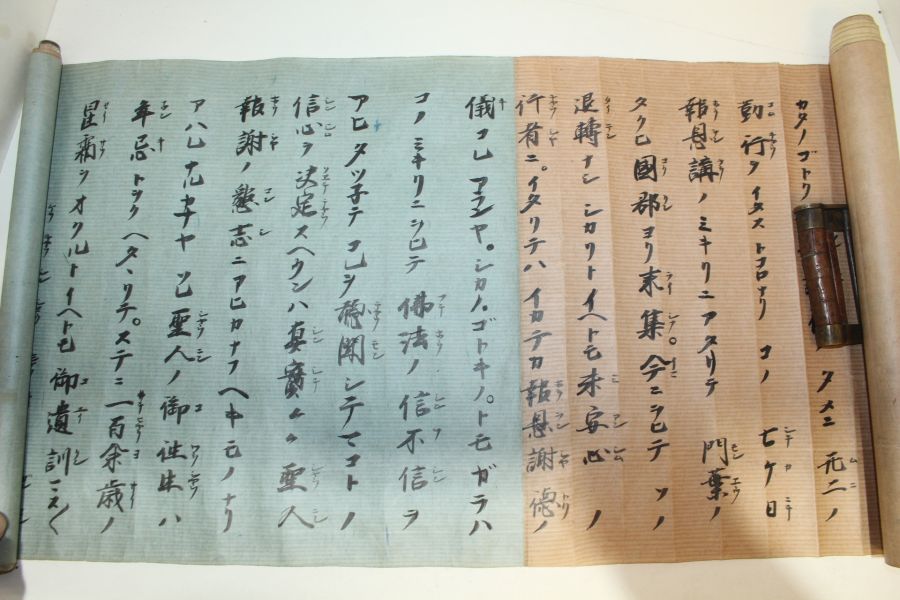 カタノゴトク タメニ 无二ノ
勤行ヲイタストコロナリ コノ 七ケ日
報恩講ノミキリニアタリテ 門葉ノ
タクヒ國郡ヨリ来集。今ニヲヒテ ソノ
退轉ナシ シカリトイヘトモ 未安心ノ
行者ニ。イタリテハ イカテカ報恩謝德ノ
儀コレアランヤ。シカノ。ゴトキノ。トモガラハ
コノミキリニヲヒテ 佛法ノ 信不信ヲ
アヒタツ子テ コレヲ聴聞シテマコトノ
信心ヲ決定スヘクンハ 真實々々 聖人
報謝ノ懇志ニアヒカナフヘキモノナリ
アハレナルカナヤ ソレ聖人ノ御往生ハ
年忌トヲクヘタヽリテ。ステニ一百余歳ノ
星霜ヲオクルトイヘトモ 御遺訓